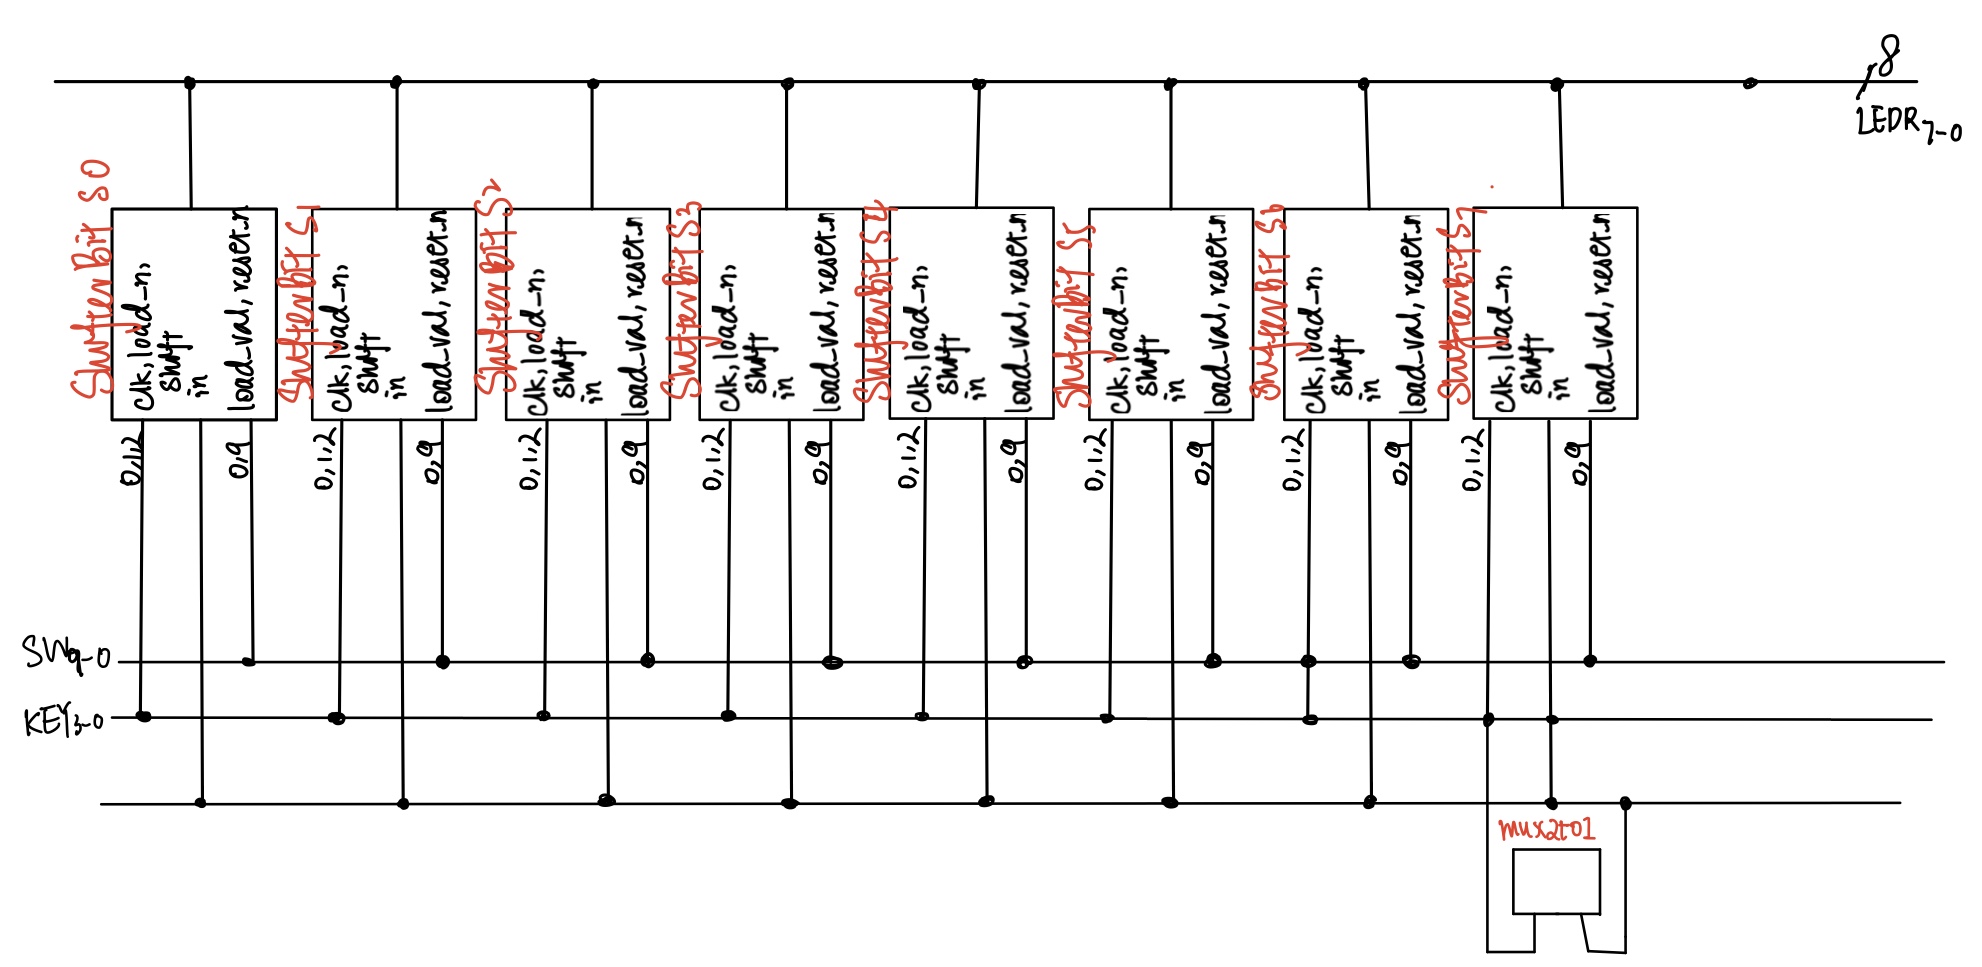 8
LEDR7-0
ShifterBit S0
clk, load_n,
shift
in
load_val, reset_n
ShifterBit S1
clk, load_n,
shift
in
load_val, reset_n
ShifterBit S2
clk, load_n,
shift
in
load_val, reset_n
ShifterBit S3
clk, load_n,
shift
in
load_val, reset_n
ShifterBit S4
clk, load_n,
shift
in
load_val, reset_n
ShifterBit S5
clk, load_n,
shift
in
load_val, reset_n
ShifterBit S6
clk, load_n,
shift
in
load_val, reset_n
ShifterBit S7
clk, load_n,
shift
in
load_val, reset_n
0,1,2
0,9
0,1,2
0,9
0,1,2
0,9
0,1,2
0,9
0,1,2
0,9
0,1,2
0,9
0,1,2
0,9
0,1,2
0,9
SW9-0
KEY3-0
mux2to1